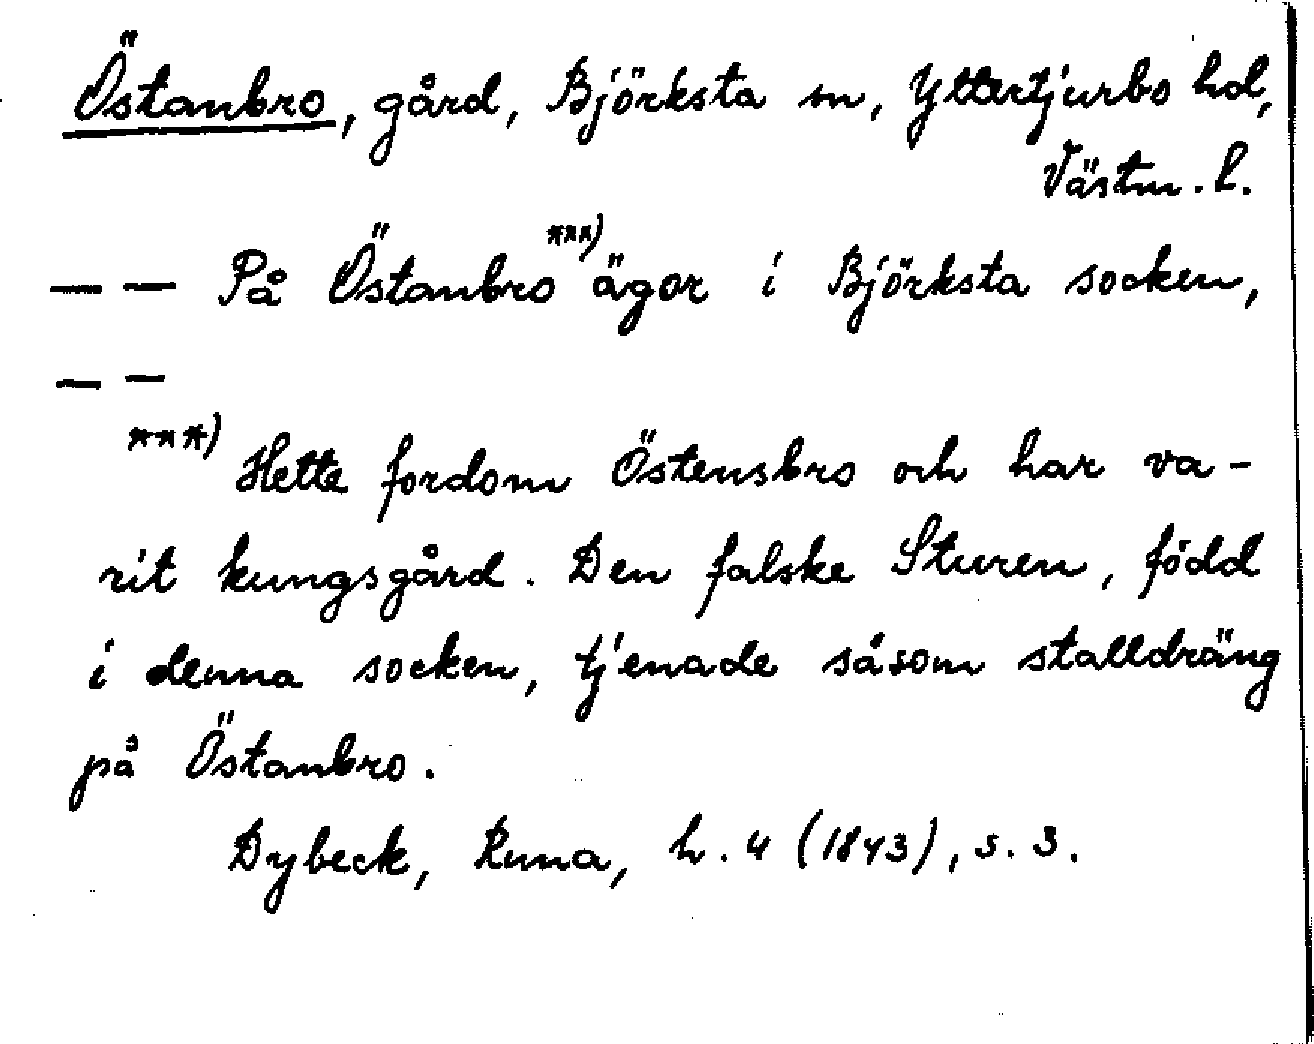 Östanbro, gård, Björksta sn, Yttertjurbo hd,
Västm. l.
— — På Östanbro***) ägor i Björksta socken,
— —
***) Hette fordom Östensbro och har va-
rit kungsgård. Den falske Sturen, född
i denna socken, tjenade såsom stalldräng
på Östanbro.
Dybeck, Runa, h. 4 (1843), s. 3.